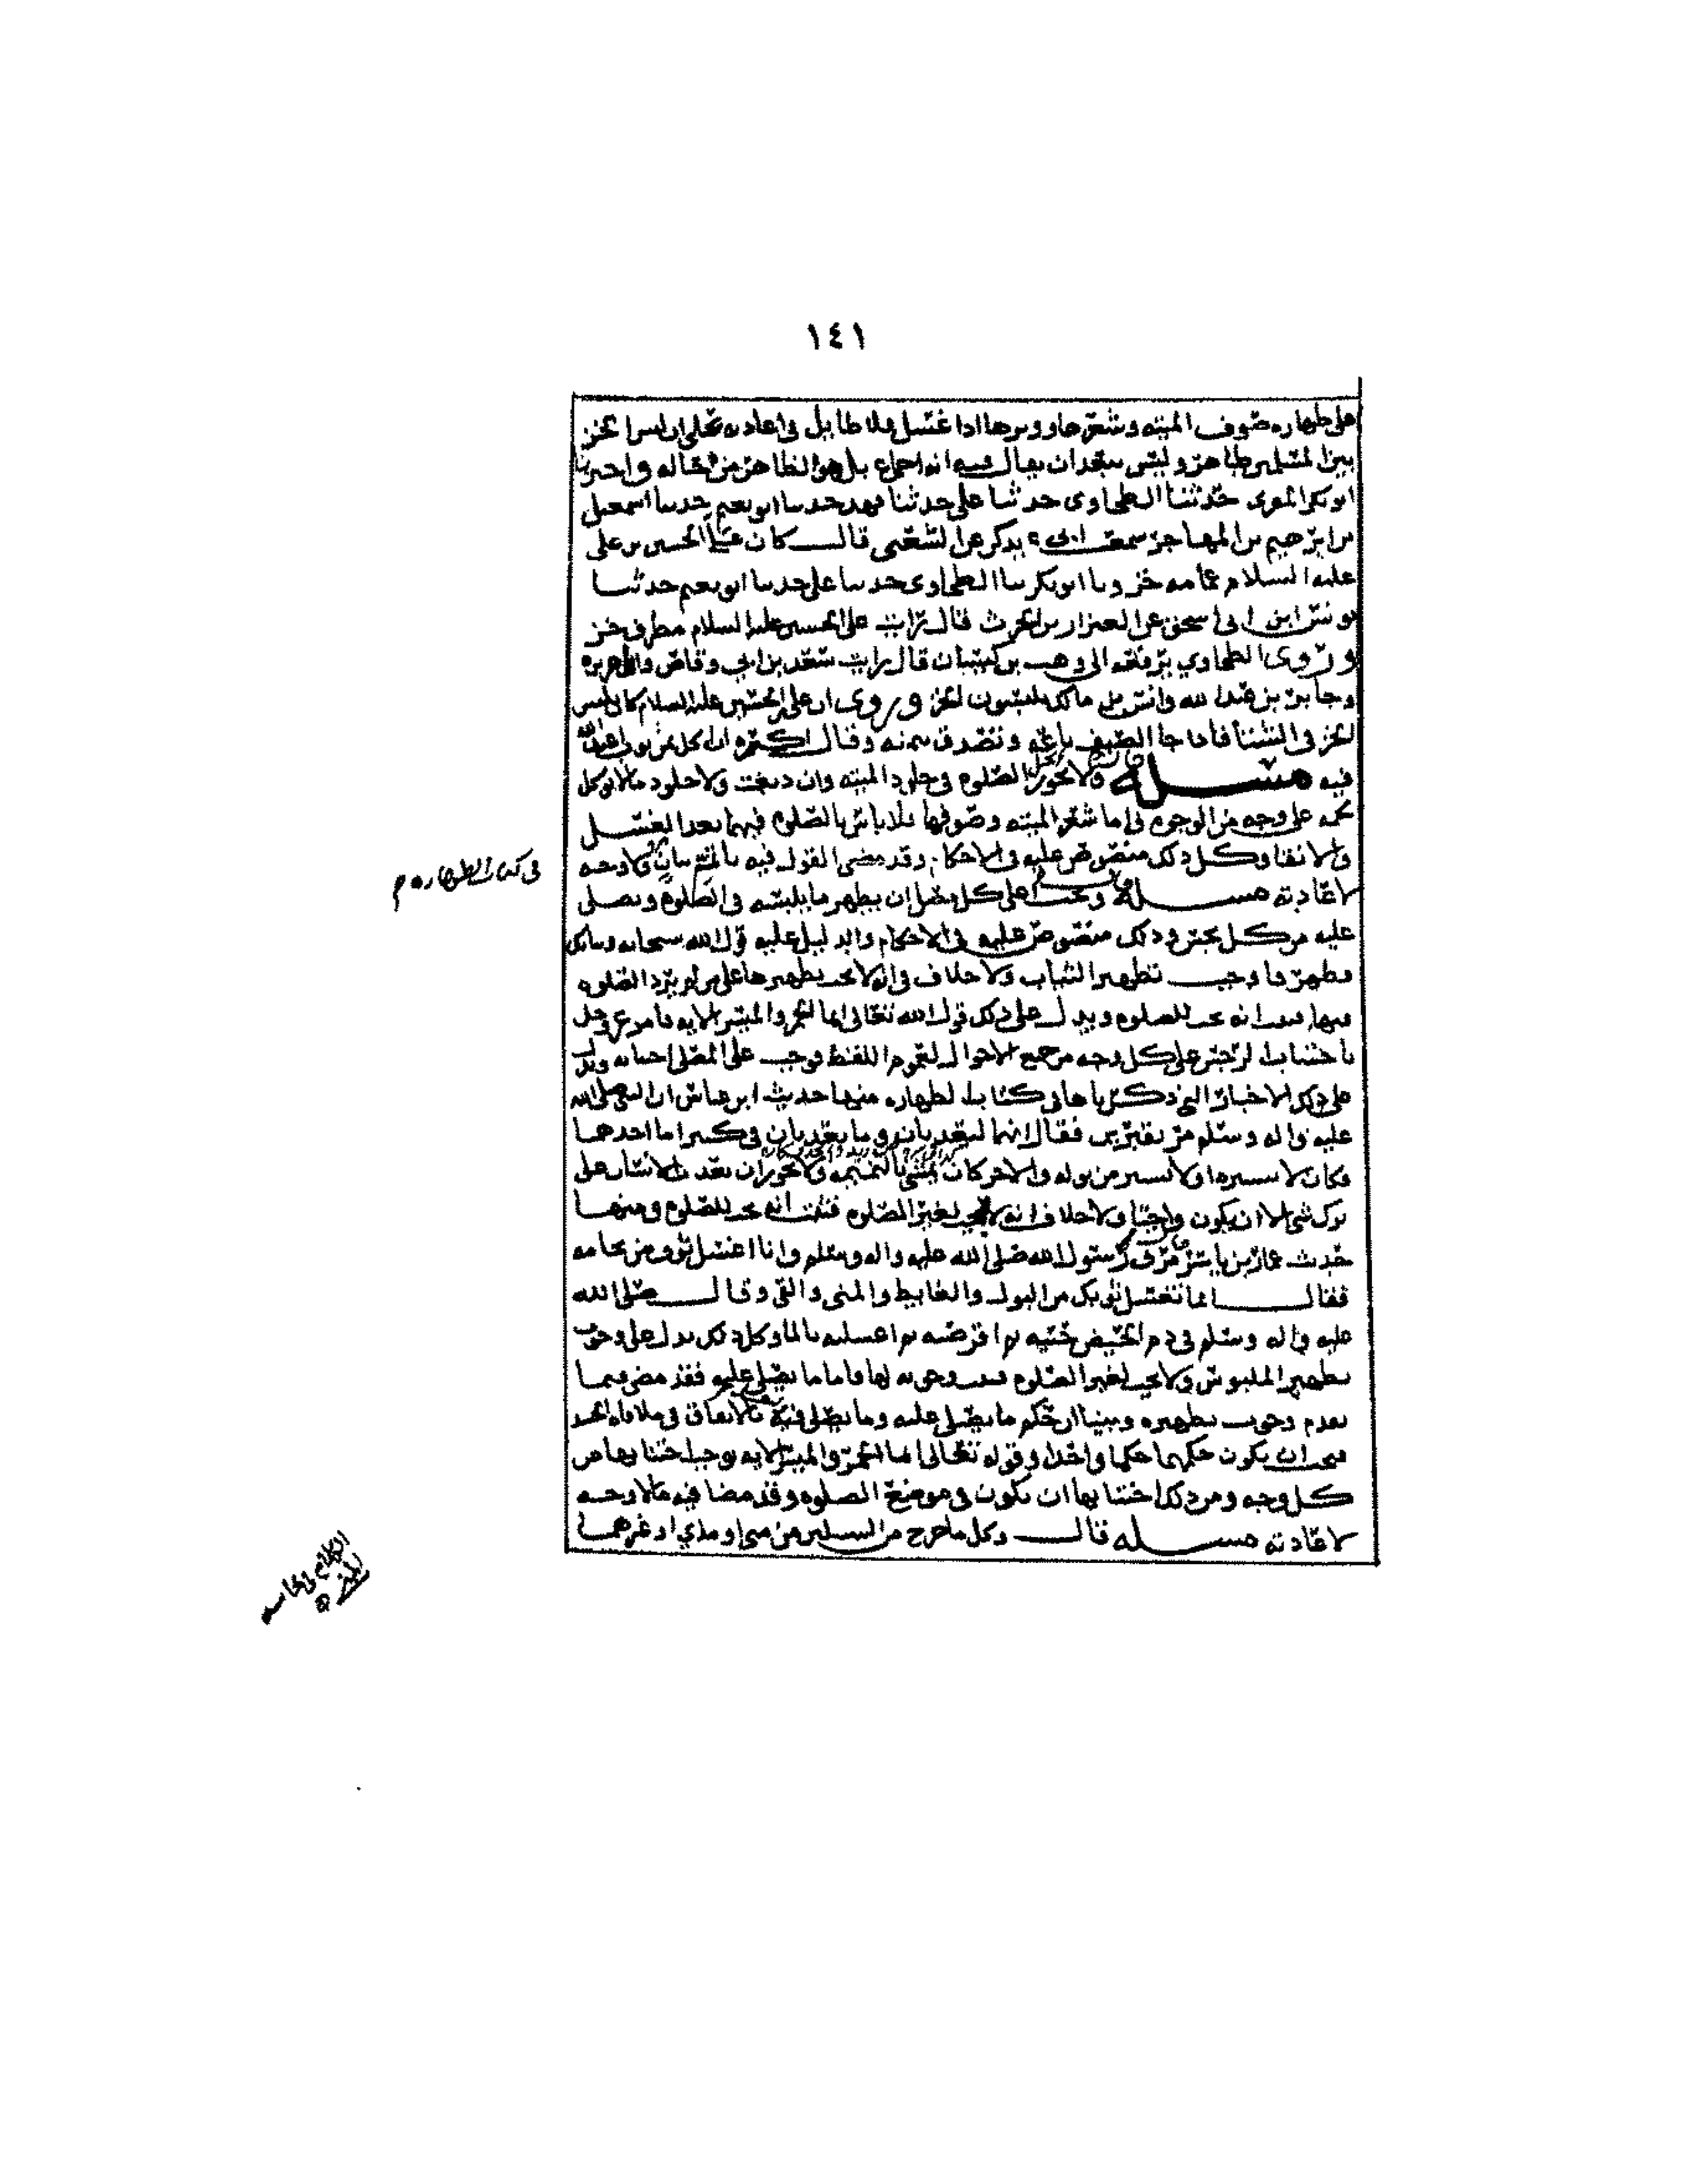 ١٤١
على طهاره صوف الميته وشعرها ووبرها اذا غسل فلا طايل في اعادته على ان لبس الخز
بين المسلمين ظاهر وليس ببعيد ان يقال فيه انه اجماع بل هو الظاهر من حاله واخبرنا
ابو بكر المقرى حدثنا الطحاوى حدثنا على حدثنا فهد حدثنا ابو نعيم حدثنا اسمعيل
بن ابرهيم بن المهاجر سمعت ابى يذكر عن الشعبى قال كان على الحسين بن على
عليه السلام عمامه خز وبا ابو بكر سا الطحاوى حدسا على حدسا ابو نعيم حدثنا
يونس ابن ابى اسحق عن العيزار بن الحرث قال رايت على الحسين عليه السلام مطرف خز
وروى الطحاوي يرفعه الى وهب بن كيسان قال رايت سعد بن ابي وقاص وابا هريره
وجابر بن عبدالله وانس بن مالك يلبسون الخز وروى ان على بن الحسين عليه السلام كان يلبس
الخز فى الشتا فاذا جا الصيف باعه وتصدق بثمنه وقال اكره ان اكل ثمن ثوب اعبد الله
فيه مسله قال ولا تجوز الصلوه في جلود الميته وان دبغت ولا جلود مالا يوكل
لحمه على وجه من الوجوه فاما شعر الميته وصوفها فلا باس بالصلوه فيهما بعد الغسل
والانقا وكل ذلك منصوص عليه في الاحكام وقد مضى القول فيه بما لا وجه
في كتاب الطهاره م
لاعادته مسله قال ويجب على كل مصل ان يطهر ما يلبسه في الصلوه ويصلى
عليه من كل نجس وذلك منصوص عليه في الاحكام والدليل عليه قول الله سبحانه وثيابك
فطهر فاوجب تطهير الثياب ولا خلاف في انه لا يجب تطهيرها على من لم يرد الصلوه
فيها فثبت انه يجب للصلوه ويدل على ذلك قول الله تعالى انما الخمر والميسر الايه فامر عز وجل
باجتناب الرجس على كل وجه من جميع الاحوال لعموم اللفظ فوجب على المصلى اجتنابه ويدل
على ذلك الاخبار التي ذكرناها في كتاب الطهاره منها حديث ابن عباس ان النبي صلى الله
عليه واله وسلم مر بقبرين فقال انهما ليعذبان وما يعذبان في كبير اما احدهما
فكان لا يستبره ولا يستبر من بوله والاخر كان يمشى بالنميمه ولا يجوز ان يعذب الانسان على
ترك شى الا ان يكون واجبا ولا خلاف انه لا يجب لغير الصلوه فثبت انه يجب للصلوه ومنها
حديث عمار بن ياسر مر بى رسول الله صلى الله عليه واله وسلم وانا اغسل ثوبى من نخامه
فقال انما تغسل ثوبك من البول والغايط والمنى والقى وقال صلى الله
عليه واله وسلم في دم الحيض حتيه ثم اقرصيه ثم اغسليه بالما وكل ذلك يدل على وجوب
تطهير الملبوس ولا يجب لغير الصلوه فثبت وجوبه لها فاما ما يصلى عليه فقد مضى فيما
تقدم وجوب تطهيره وبينا ان حكم ما يصلى عليه وما يصلى فيه بالاتفاق في ملاقاه الجسد
فيجب ان يكون حكمهما حكما واحدا وقوله تعالى انما الخمر والميسر الايه يوجب اجتنابها من
كل وجه ومن ذلك اجتنابها ان تكون في موضع الصلوه وقد مضا فيه مالا وجه
لاعادته مسله قال وكل ما خرج من السبيلين من منى او مذي او غيرهما